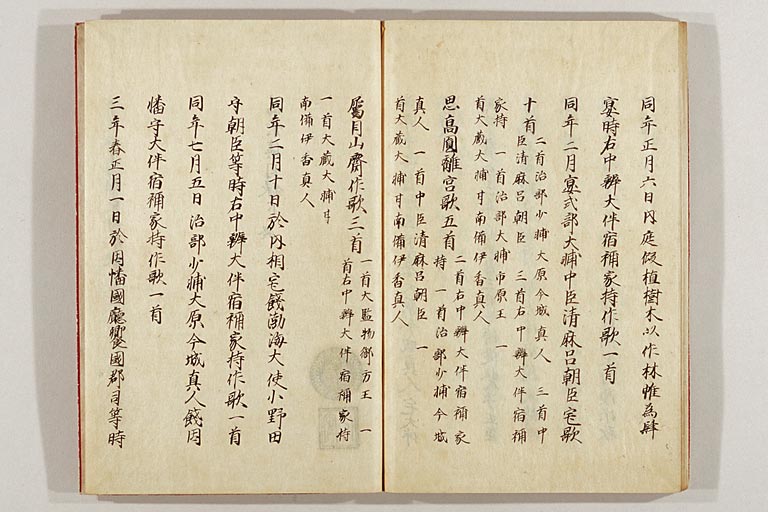 同年正月六日内庭假植樹木以作林帷為肆
宴時右中辨大伴宿祢家持作歌一首
同年二月宴式部大輔中臣清麻呂朝臣宅歌
十首
二首治部少輔大原今城真人 三首中
臣清麻呂朝臣 三首右中辨大伴宿祢
家持 一首治部大輔市原王 一
首大蔵大輔甘南備伊香真人
思高圓離宮歌五首
二首右中辨大伴宿祢家
持 一首治部少輔今城
真人 一首中臣清麻呂朝臣 一
首大蔵大輔甘南備伊香真人
属目山齊作歌三首
一首大監物御方王 一
首右中辨大伴宿祢家持
一首大蔵大輔甘
南備伊香真人
同年二月十日於内相宅餞渤海大使小野田
守朝臣等時右中辨大伴宿祢家持作歌一首
同年七月五日治部少輔大原今城真人餞因
幡守大伴宿祢家持作歌一首
三年春正月一日於因幡國廳饗國郡司等時